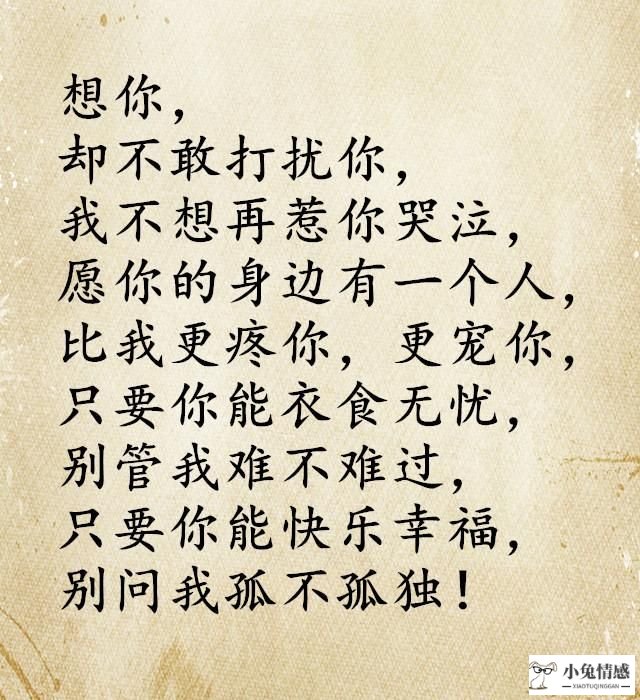 想你，
却不敢打扰你，
我不想再惹你哭泣，
愿你的身边有一个人，
比我更疼你，更宠你，
只要你能衣食无忧，
别管我难不难过，
只要你能快乐幸福，
别问我孤不孤独！
小兔情感
XIAOTUQINGGAN